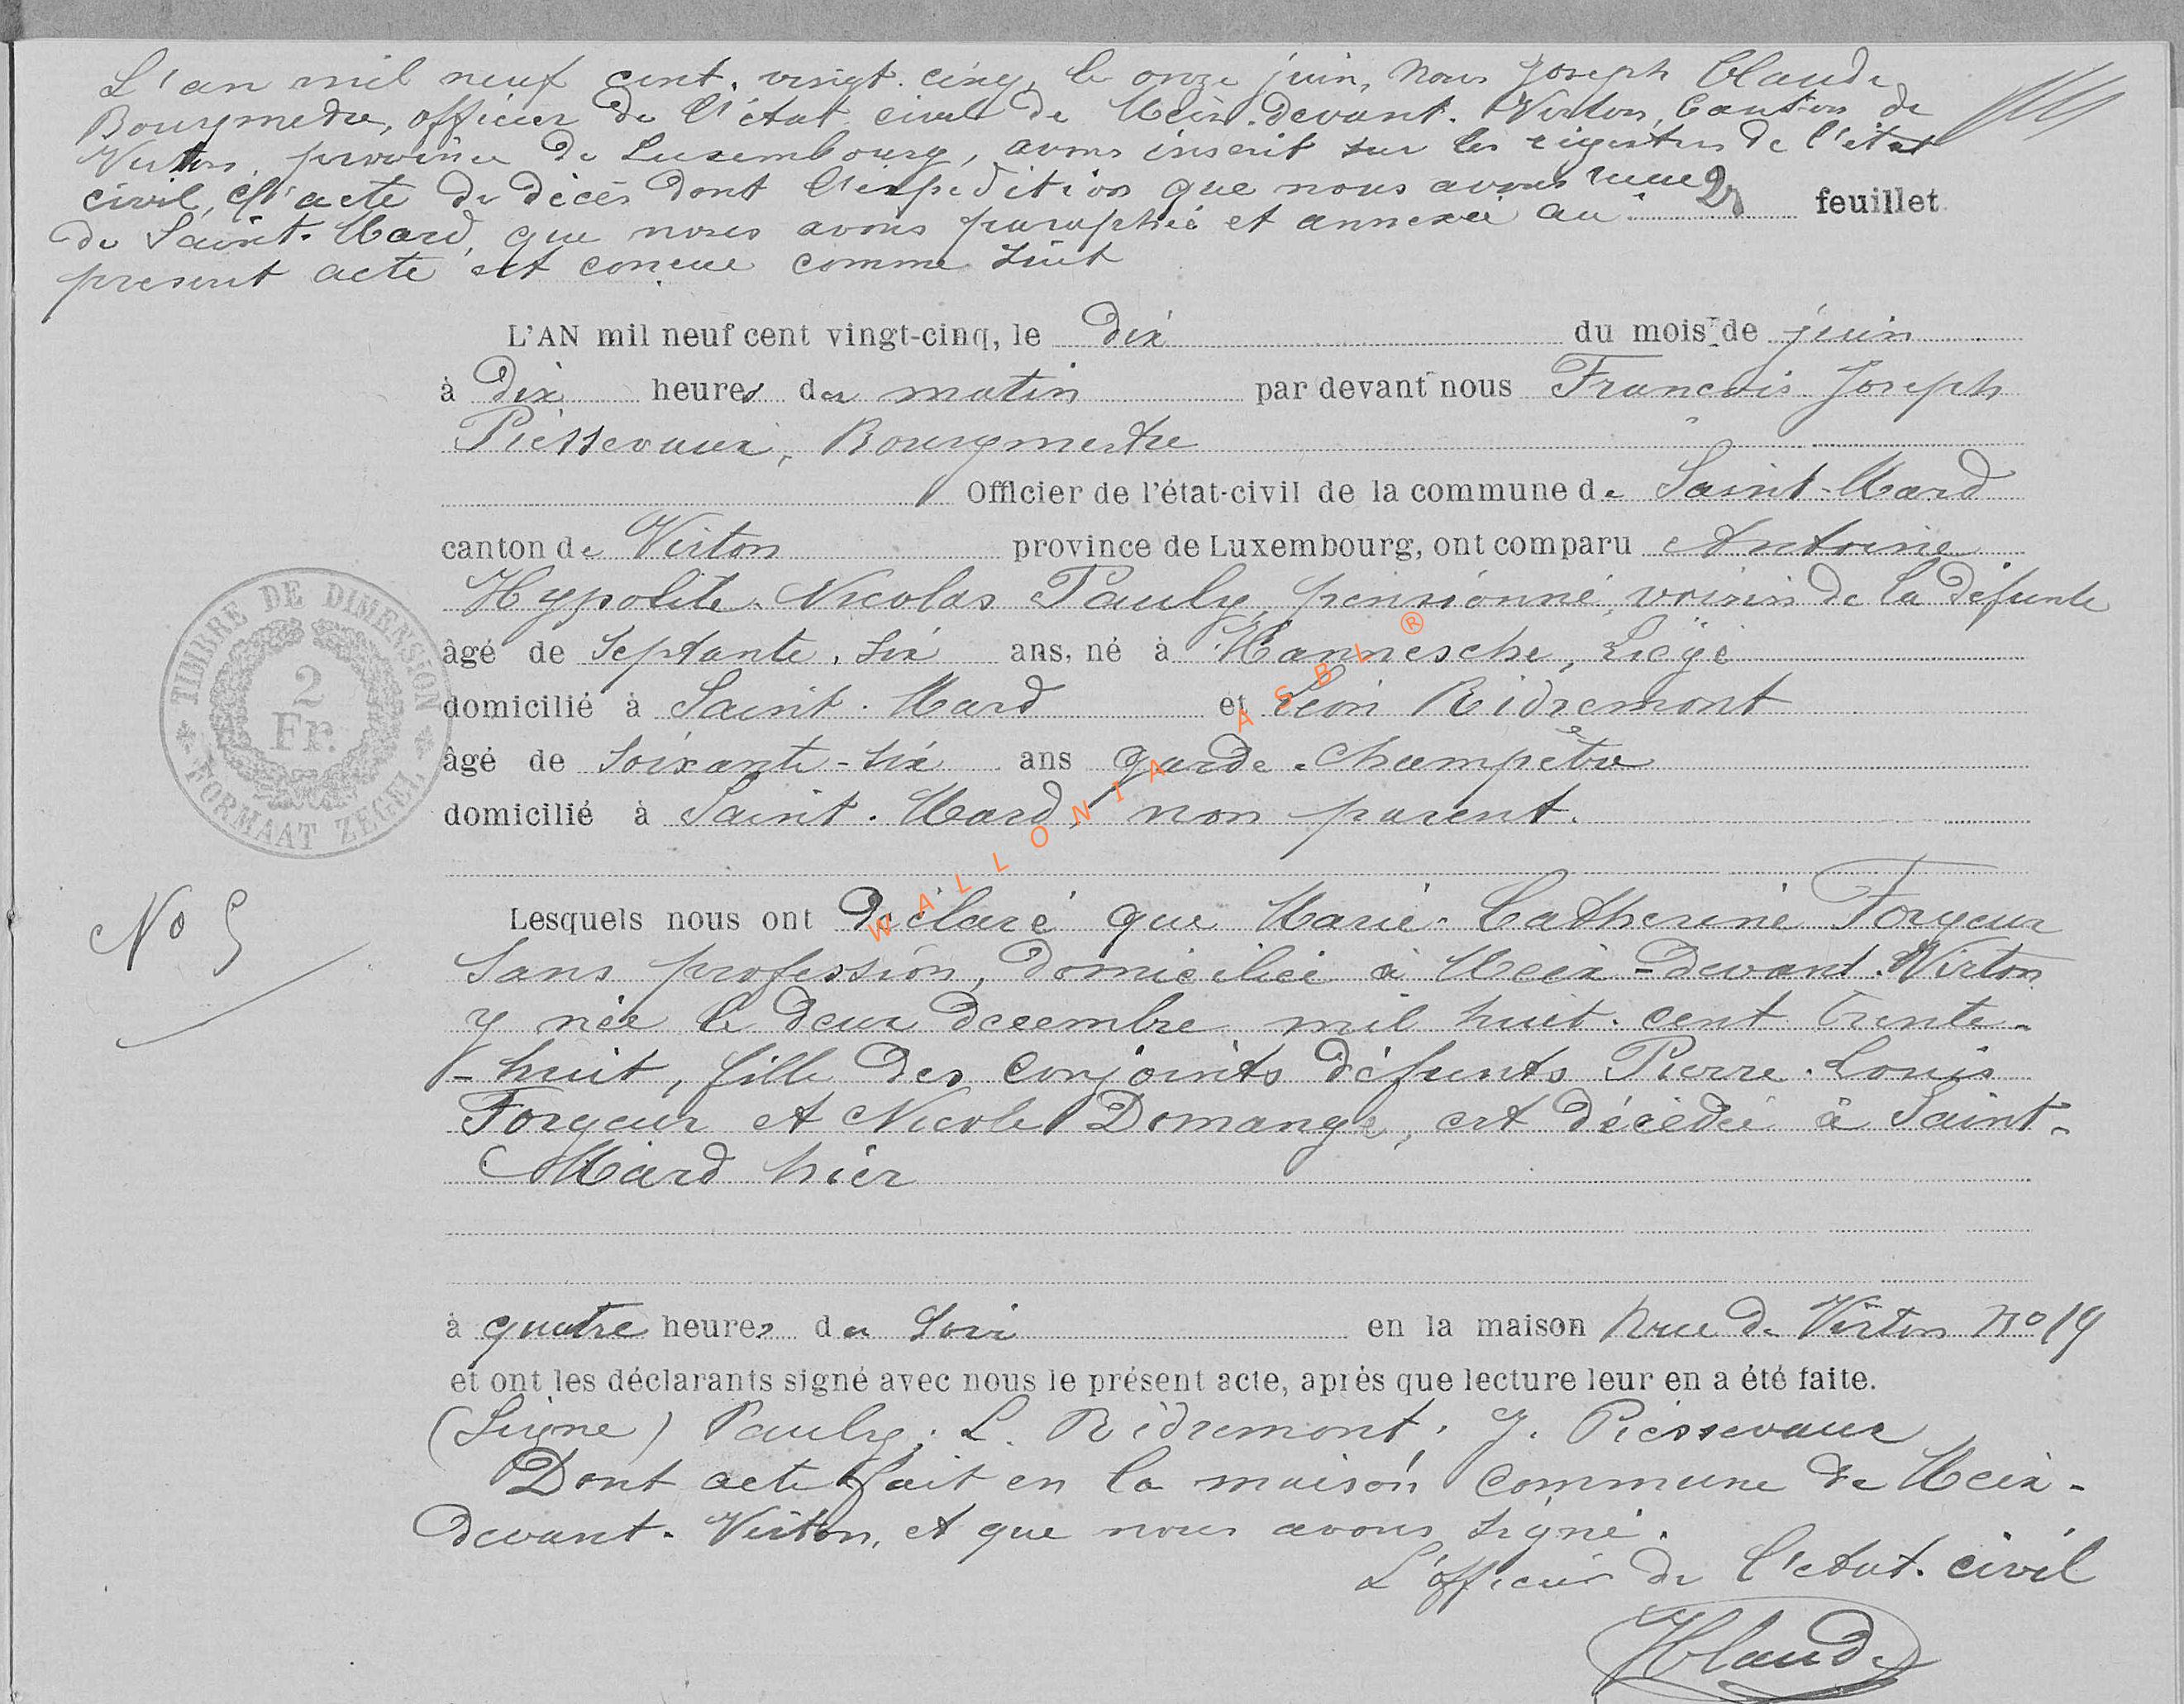 L'an mil neuf cent vingt cinq, le onze juin, Nous Joseph Claude
Bourgmestre, officier de l'état civil de Meix-devant-Virton, Canton de
Virton, province de Luxembourg, avons inscrit sur les registres de l'état
civil, l'acte de décès dont l'expédition que nous avons recue 25 feuillet
de Saint-Mard, que nous avons paraphée et annexée au
present acte est concue comme suit
L'AN mil neuf cent vingt-cinq, le dix du mois de juin
à dix heures du matin par devant nous Francois Joseph
Piessevaux, Bourgmestre
Officier de l'état-civil de la commune de Saint-Mard
canton de Virton province de Luxembourg, ont comparu Antoine
Hypolite Nicolas Pauly, pensionné, voisin de la défunte
âgé de septante-six ans, né à Hannesche, Liège
domicilié à Saint-Mard et Léon Ridremont
âgé de soixante-six ans garde-champêtre
domicilié à Saint-Mard, non parent.
No 5
Lesquels nous ont déclaré que Marie-Catherine Forgeur
sans profession, domiciliée à Meix-devant-Virton
y née le deux decembre mil huit cent trente-
-huit, fille des conjoints défunts Pierre-Louis
Forgeur et Nicole Domange, est décédée à Saint-
Mard hier
à quatre heures du soir en la maison rue de Virton no 19
et ont les déclarants signé avec nous le présent acte, après que lecture leur en a été faite.
(Signe) Pauly, L. Ridremont, J. Piessevaux
Dont acte fait en la maison commune de Meix-
devant-Virton, et que nous avons signé.
L'officier de l'état-civil
JClaude
TIMBRE DE DIMENSION
2
Fr.
FORMAAT ZEGEL
WALLONIA ASBL ®